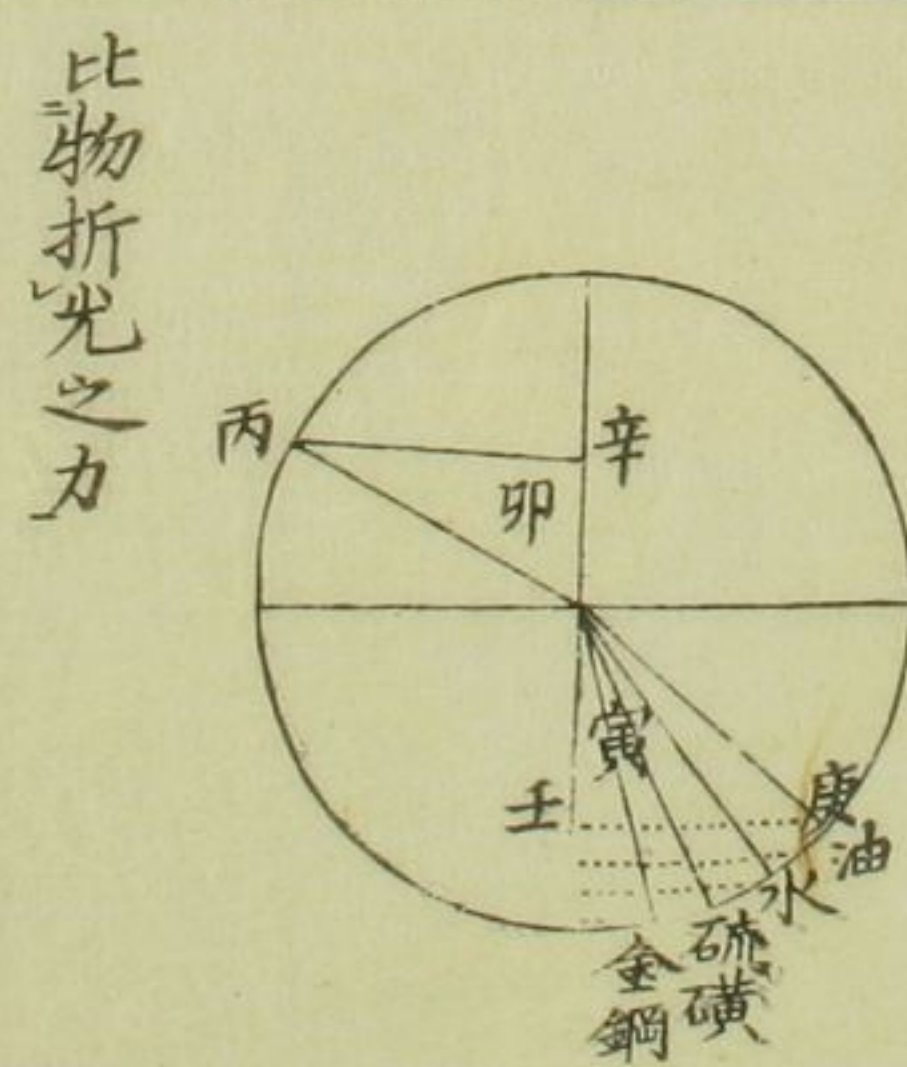 比物折光之力
丙
辛
卯
寅
壬
庚
油
水
硫磺
金鋼